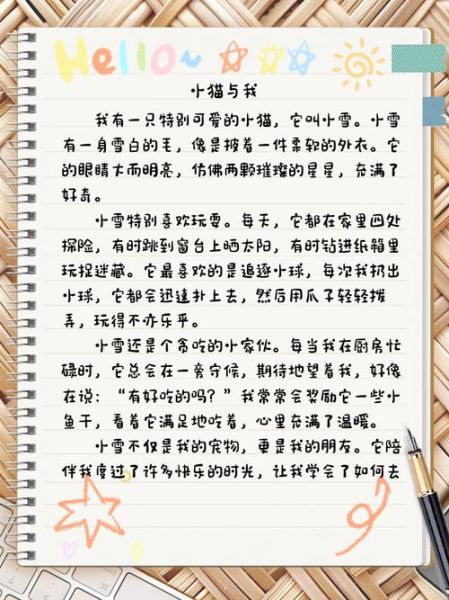 Hello~
小猫与我
我有一只特别可爱的小猫，它叫小雪。小雪
有一身雪白的毛，像是披着一件柔软的外衣。它
的眼睛大而明亮，仿佛两颗璀璨的星星，充满了
好奇。
小雪特别喜欢玩耍。每天，它都在家里四处
探险，有时跳到窗台上晒太阳，有时钻进纸箱里
玩捉迷藏。它最喜欢的是追逐小球，每次我扔出
小球，它都会迅速扑上去，然后用爪子轻轻拨
弄，玩得不亦乐乎。
小雪还是个贪吃的小家伙。每当我在厨房忙
碌时，它总会在一旁守候，期待地望着我，好像
在说：“有好吃的吗？”我常常会奖励它一些小
鱼干，看着它满足地吃着，心里充满了温暖。
小雪不仅是我的宠物，更是我的朋友。它陪
伴我度过了许多快乐的时光，让我学会了如何去